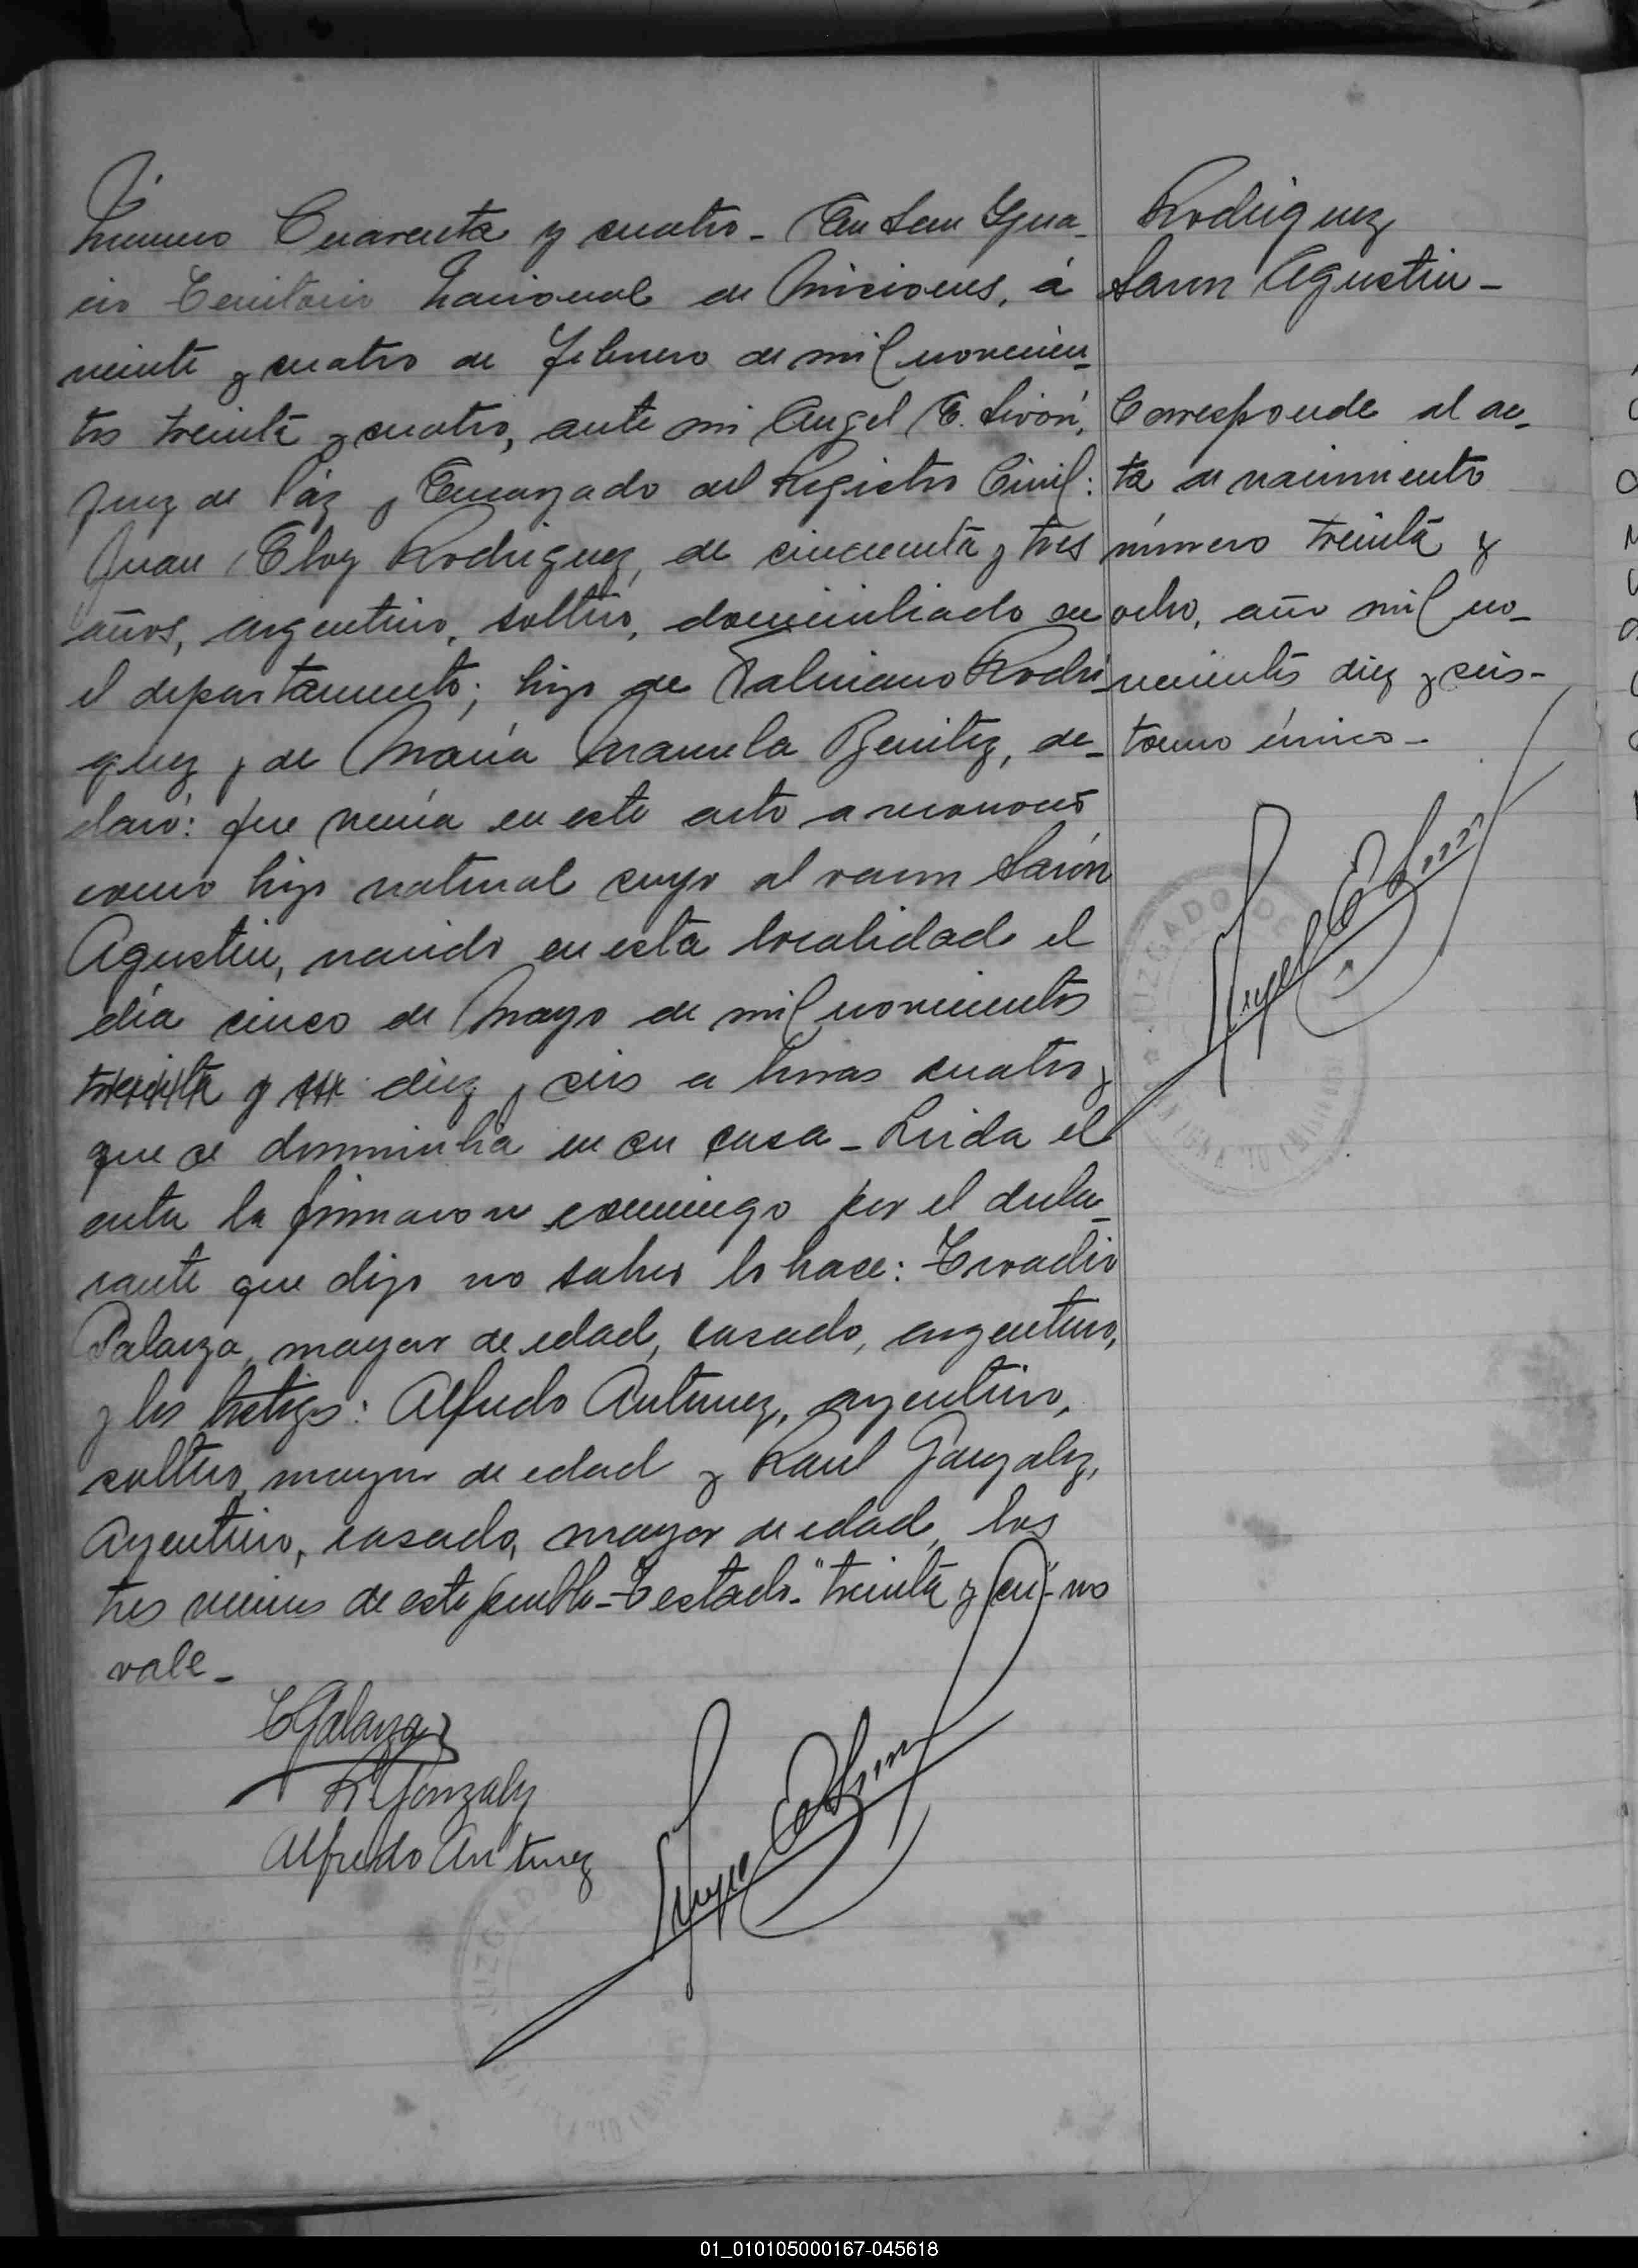 Número Cuarenta y cuatro - En San Igna-
cio Territorio Nacional de Misiones, á
veinte y cuatro de febrero de mil novecien-
tos treinta y cuatro, ante mi Angel E.
Juez de Paz y Encargado del Registro Civil:
Juan Eloy Rodriguez, de cincuenta y tres
años, argentino, soltero, domiciliado en
el departamento; hijo de Rodri-
guez y de María Manuela Benitez, de-
claró: que venía en este acto a reconocer
como hijo natural suyo al varon
Agustin, nacido en esta localidad el
día cinco de Mayo de mil novecientos
treinta y diez y seis a horas cuatro y
que se domicilia en su casa - Leida el
acta la firmaron conmigo por el decla-
rante que dijo no saber lo hace:
mayor de edad, casado, argentino,
y los testigos: Alfredo Antunez, argentino,
soltero, mayor de edad y Raul Gonzalez,
Argentino, casado, mayor de edad, los
tres vecinos de este pueblo - Testado - "treinta y - no
vale -
R. Gonzalez
Alfredo Antunez
Rodriguez
Agustin -
Corresponde al ac-
ta de nacimiento
número treinta y
ocho, año mil no-
vecientos diez y seis -
tomo único -
Angel E.
JUZGADO DE
JUZGADO
01_010105000167-045618